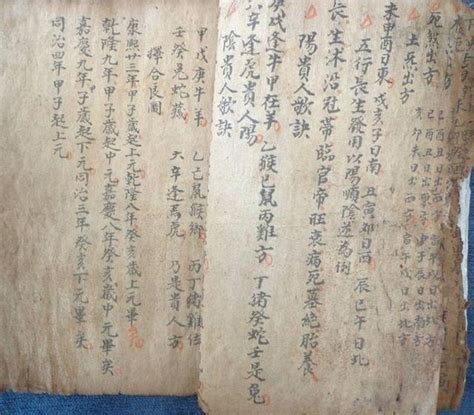 出方
土死出方
未申酉日東 戌亥子日南 丑寅卯日西 辰巳午日北
五行長生發用以陽順陰逆為例
長生沐浴冠帶臨官帝旺衰病死墓絕胎養
陽貴人歌訣
庚戊逢牛甲在羊 乙猴己鼠丙雞方 丁猪癸蛇壬是兔
六辛逢虎貴人陽
陰貴人歌訣
甲戊庚牛羊 乙己鼠猴鄉 丙丁猪雞位
壬癸兔蛇藏 六辛逢馬虎 乃是貴人方
擇合良圖
康熙廿三年甲子歲起上元乾隆八年癸亥歲上元畢矣
乾隆九年甲子歲起中元嘉慶八年癸亥歲中元畢矣
嘉慶九年甲子歲起下元同治二年癸亥下元畢矣
同治四年甲子起上元